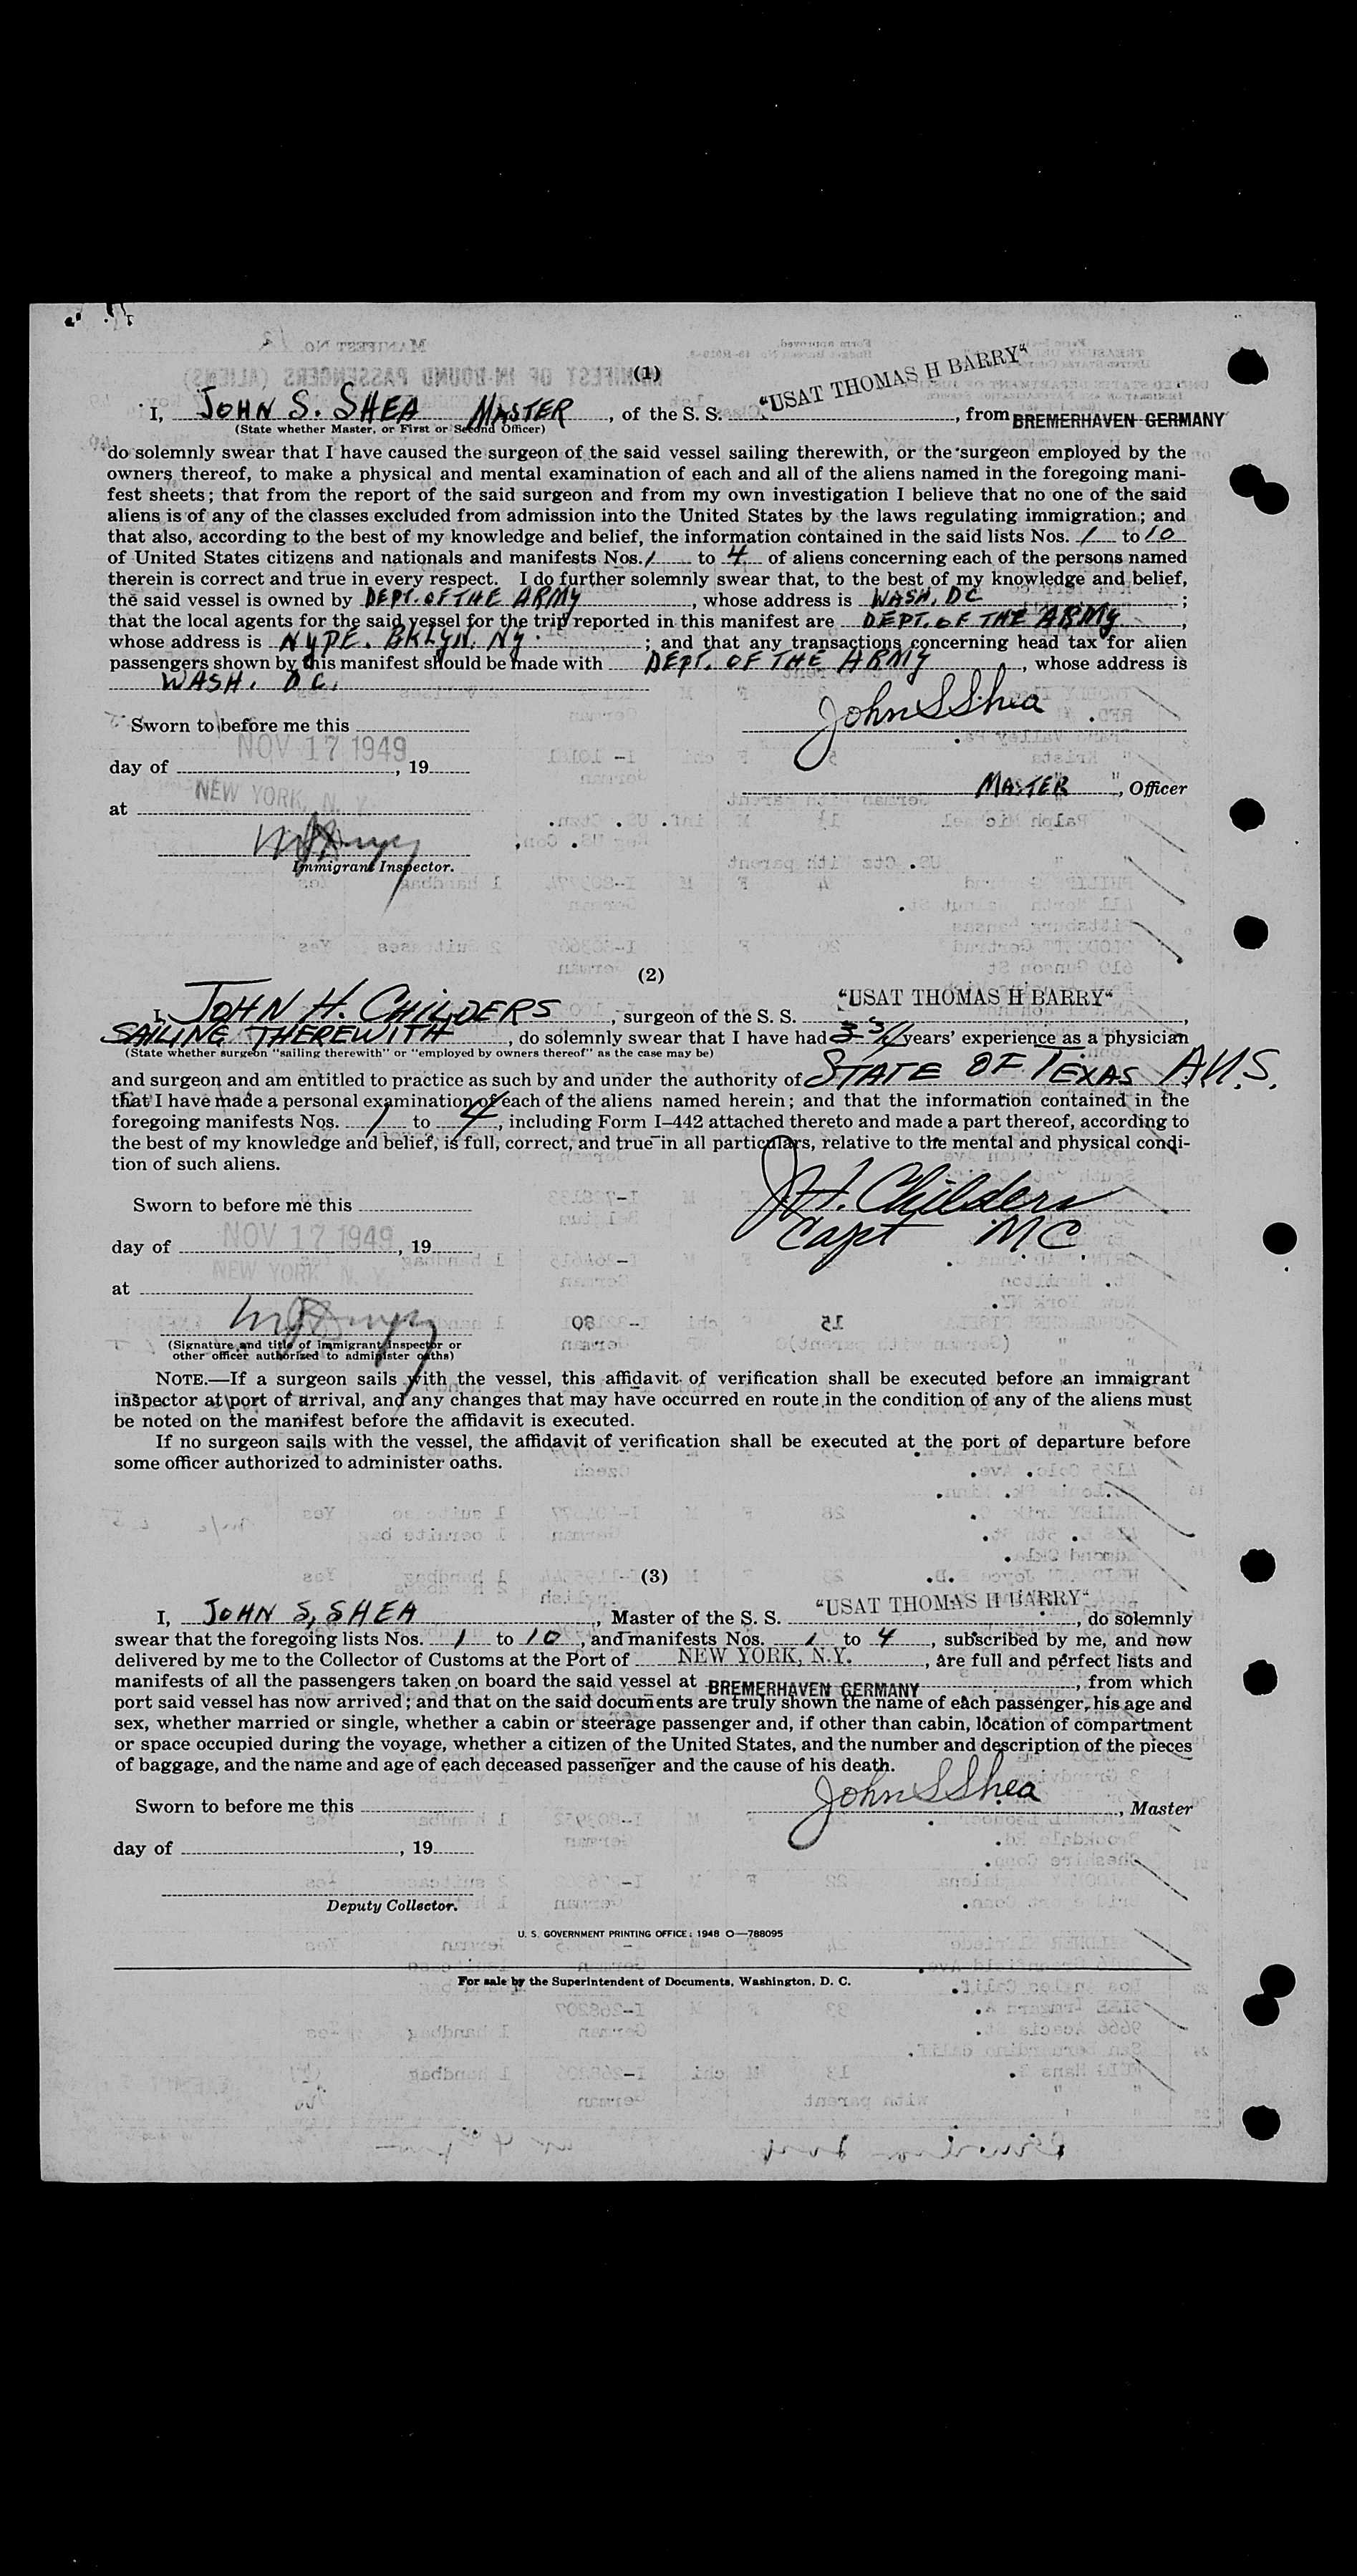 (1)
I, JOHN S. SHEA MASTER, of the S. S. "USAT THOMAS H BARRY", from BREMERHAVEN GERMANY
(State whether Master, or First or Second Officer)
do solemnly swear that I have caused the surgeon of the said vessel sailing therewith, or the surgeon employed by the
owners thereof, to make a physical and mental examination of each and all of the aliens named in the foregoing mani-
fest sheets; that from the report of the said surgeon and from my own investigation I believe that no one of the said
aliens is of any of the classes excluded from admission into the United States by the laws regulating immigration; and
that also, according to the best of my knowledge and belief, the information contained in the said lists Nos. 1 to 10
of United States citizens and nationals and manifests Nos. 1 to 4 of aliens concerning each of the persons named
therein is correct and true in every respect. I do further solemnly swear that, to the best of my knowledge and belief,
the said vessel is owned by DEPT. OF THE ARMY, whose address is WASH, DC;
that the local agents for the said vessel for the trip reported in this manifest are DEPT. OF THE ARMY,
whose address is NYPE. BKLYN. NY.; and that any transactions concerning head tax for alien
passengers shown by this manifest should be made with DEPT. OF THE ARMY, whose address is
WASH. DC.
Sworn to before me this
John S Shea
NOV 17 1949
day of , 19
MASTER, Officer
NEW YORK, N. Y.
at
Immigrant Inspector.
(2)
I, JOHN H. CHILDERS, surgeon of the S. S. "USAT THOMAS H BARRY",
SAILING THEREWITH, do solemnly swear that I have had years' experience as a physician
(State whether surgeon "sailing therewith" or "employed by owners thereof" as the case may be)
and surgeon and am entitled to practice as such by and under the authority of STATE OF TEXAS
that I have made a personal examination of each of the aliens named herein; and that the information contained in the
foregoing manifests Nos. 1 to 4, including Form I-442 attached thereto and made a part thereof, according to
the best of my knowledge and belief, is full, correct, and true in all particulars, relative to the mental and physical condi-
tion of such aliens.
Sworn to before me this
J.H. Childers
Capt M.C.
NOV 17 1949
day of , 19
NEW YORK, N. Y.
at
(Signature and title of immigrant inspector or
other officer authorized to administer oaths)
NOTE.—If a surgeon sails with the vessel, this affidavit of verification shall be executed before an immigrant
inspector at port of arrival, and any changes that may have occurred en route in the condition of any of the aliens must
be noted on the manifest before the affidavit is executed.
If no surgeon sails with the vessel, the affidavit of verification shall be executed at the port of departure before
some officer authorized to administer oaths.
(3)
I, JOHN S, SHEA, Master of the S. S. "USAT THOMAS H BARRY", do solemnly
swear that the foregoing lists Nos. 1 to 10, and manifests Nos. 1 to 4, subscribed by me, and now
delivered by me to the Collector of Customs at the Port of NEW YORK, N.Y., are full and perfect lists and
manifests of all the passengers taken on board the said vessel at BREMERHAVEN GERMANY, from which
port said vessel has now arrived; and that on the said documents are truly shown the name of each passenger, his age and
sex, whether married or single, whether a cabin or steerage passenger and, if other than cabin, location of compartment
or space occupied during the voyage, whether a citizen of the United States, and the number and description of the pieces
of baggage, and the name and age of each deceased passenger and the cause of his death.
Sworn to before me this
John S Shea, Master
day of , 19
Deputy Collector.
U. S. GOVERNMENT PRINTING OFFICE: 1948 O—788095
For sale by the Superintendent of Documents, Washington, D. C.